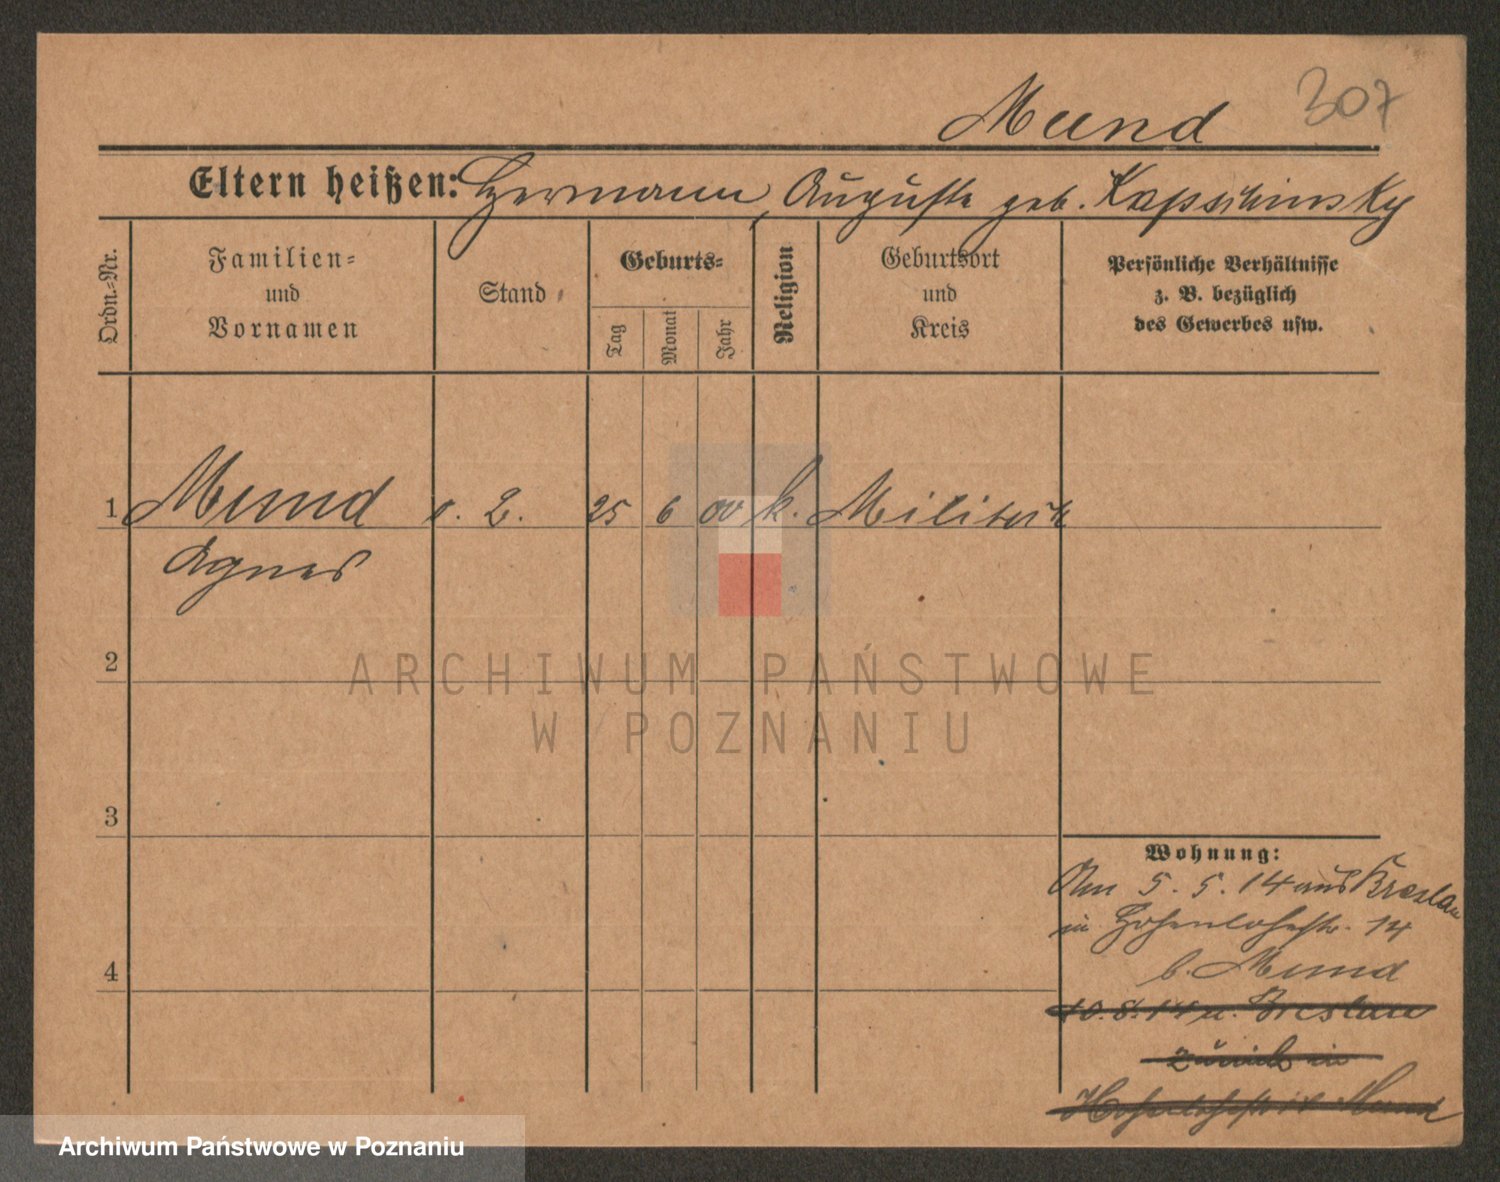 307
Mund
Eltern heißen: Hermann, Auguste geb. Kapschinsky
Ordn.-Nr.
Familien-
und
Vornamen
Stand
Geburts-
Tag
Monat
Jahr
Religion
Geburtsort
und
Kreis
Persönliche Verhältnisse
z. B. bezüglich
des Gewerbes usw.
1 Mund 25 6 00 k. Militsch
Agnes
2
3
4
Wohnung:
Am 5. 5. 14 aus Breslau
in Hohenlohestr. 14
b. Mund
10.8.14 n. Breslau
zurück in
Hohenlohestr 14 Mund
ARCHIWUM PAŃSTWOWE
W POZNANIU
Archiwum Państwowe w Poznaniu